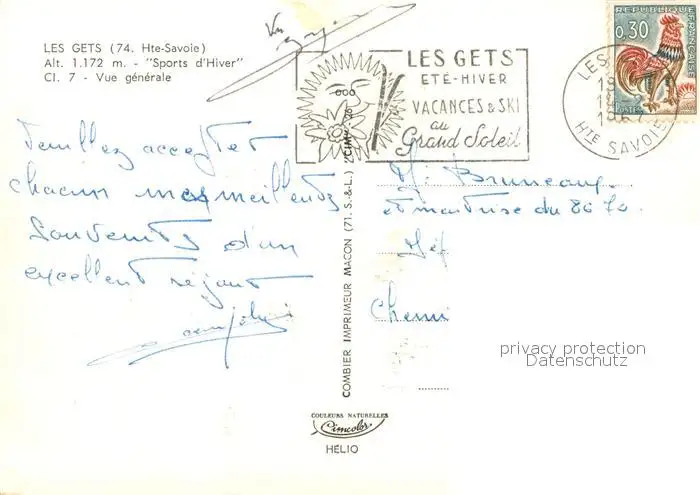 LES GETS (74. Hte-Savoie)
Alt. 1.172 m. - "Sports d'Hiver"
Cl. 7 - Vue générale
LES GETS
ETÉ-HIVER
VACANCES & SKI
au
Grand Soleil
0,30
REPUBLIQUE FRANÇAISE
POSTES
LES
HTE SAVOIE
Veuillez accepter
chacun mes meilleurs
souvenirs d'un
excellent séjour
M. Bruneau
et maîtrise du 8e
Chemi
COMBIER IMPRIMEUR MACON (71. S.-&-L.) "CIM"
privacy protection
Datenschutz
COULEURS NATURELLES
Cimcolor
HÉLIO